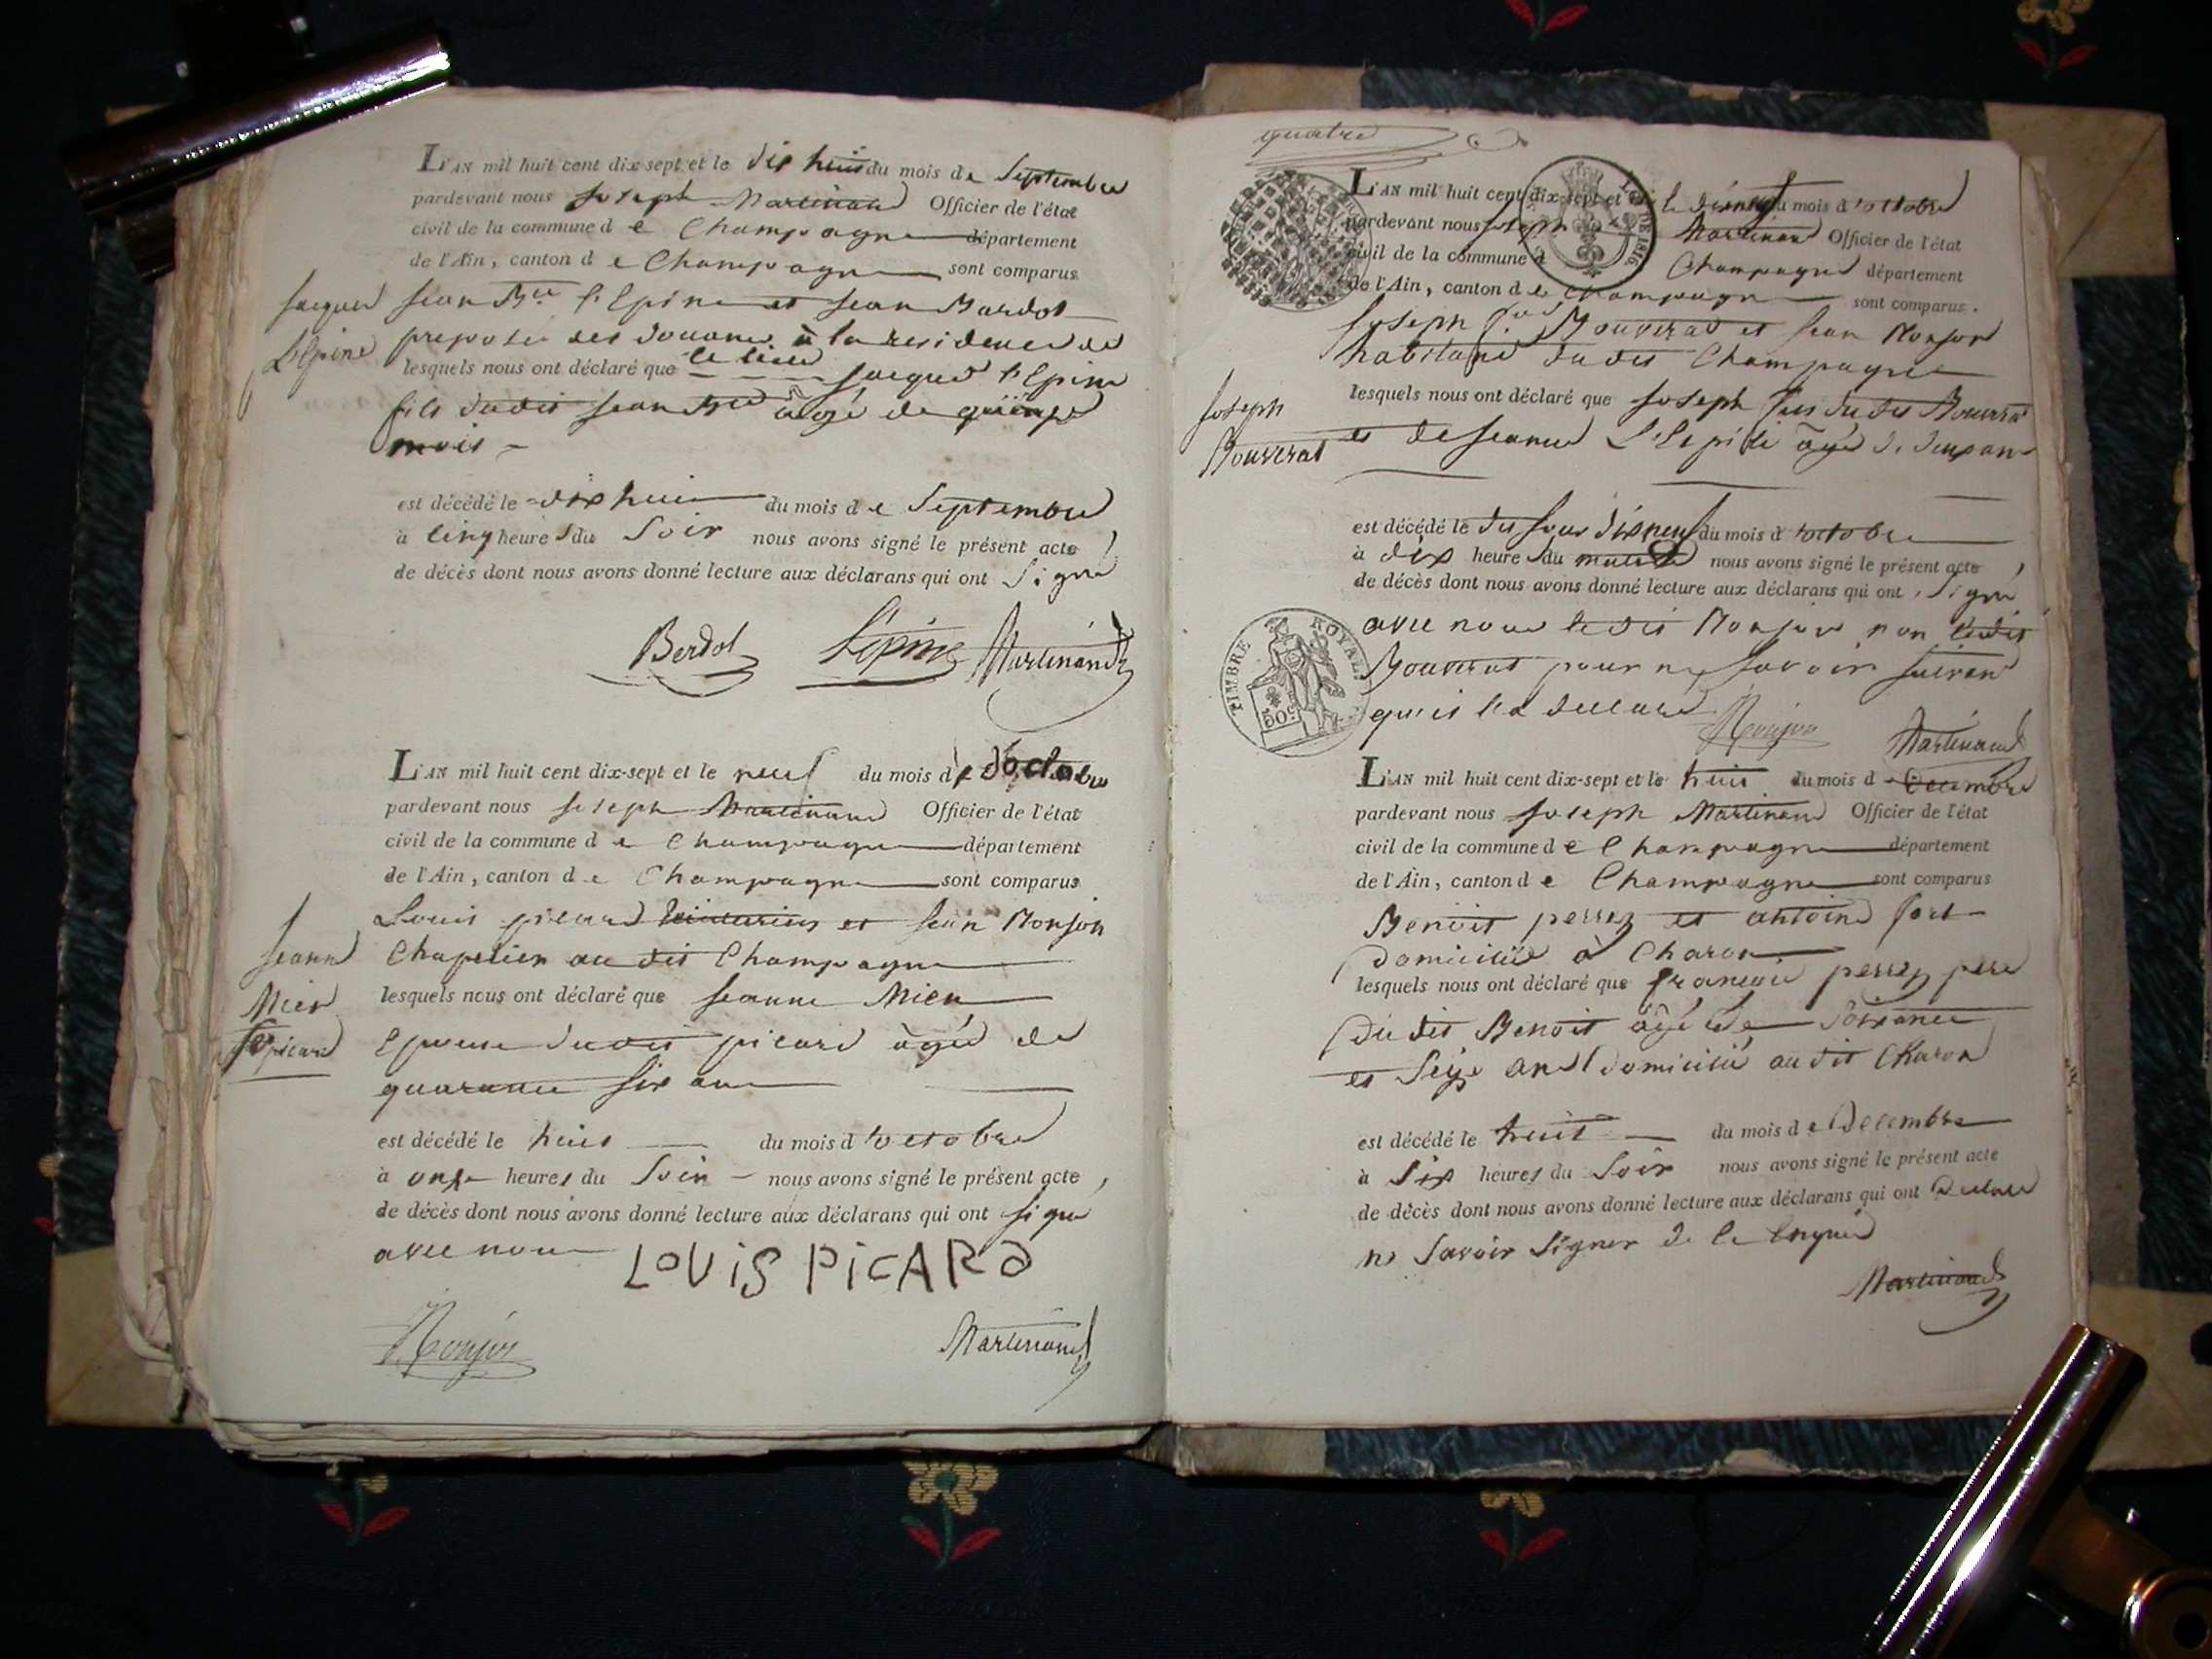 L'AN mil huit cent dix-sept et le dix huit du mois de Septembre
pardevant nous joseph Martinand Officier de l'état
civil de la commune de Champagne département
de l'Ain, canton de Champagne sont comparus
jacques
L'Epine
jean Bte l'Epine et jean Bardot
preposés des douanes à la residence de
lesquels nous ont déclaré que jacques l'Epine
fils dudit jean Bte agé de quinze
mois
est décédé le dix huit du mois de Septembre
à cinq heures du Soir nous avons signé le présent acte
de décès dont nous avons donné lecture aux déclarans qui ont Signé
Berdot Lépine Martinand
L'AN mil huit cent dix-sept et le neuf du mois d'octobre
pardevant nous joseph Martinand Officier de l'état
civil de la commune de Champagne département
de l'Ain, canton de Champagne sont comparus
Louis picard et jean Monjon
Chapelier au dit Champagne
jeanne
Mien
fe picard
lesquels nous ont déclaré que jeanne Mien
Epouse dudit picard agée de
quarante six ans
est décédé le huit du mois d'octobre
à onze heures du Soir nous avons signé le présent acte
de décès dont nous avons donné lecture aux déclarans qui ont signé
avec nous
LOUIS PICARD
Monjon Martinand
quatre
L'AN mil huit cent dix-sept et le dixneuf du mois d'octobre
pardevant nous joseph Martinand Officier de l'état
civil de la commune de Champagne département
de l'Ain, canton de Champagne sont comparus.
LOI DE 1816
joseph fois Bouverat et jean Monjon
habitans dudit Champagne
joseph
Bouverat
lesquels nous ont déclaré que joseph fils dudit Bouverat
et de jeanne agé de deux ans
est décédé le dixneuf du mois d'octobre
à dix heures du matin nous avons signé le présent acte
de décès dont nous avons donné lecture aux déclarans qui ont Signé
avec nous ledit Monjon non ledit
Bouverat pour ne savoir suivant
qu'il l'a declaré
TIMBRE ROYAL
50c
Monjon Martinand
L'AN mil huit cent dix-sept et le huit du mois de Decembre
pardevant nous joseph Martinand Officier de l'état
civil de la commune de Champagne département
de l'Ain, canton de Champagne sont comparus
Benoit perret et antoine fort
Domiciliés à Charon
lesquels nous ont déclaré que francois perret pere
Du dit Benoit agé de soixante
et Seize ans Domicilié au dit Charon
est décédé le huit du mois de Decembre
à Six heures du Soir nous avons signé le présent acte
de décès dont nous avons donné lecture aux déclarans qui ont declaré
ne savoir Signer de ce enquis
Martinand